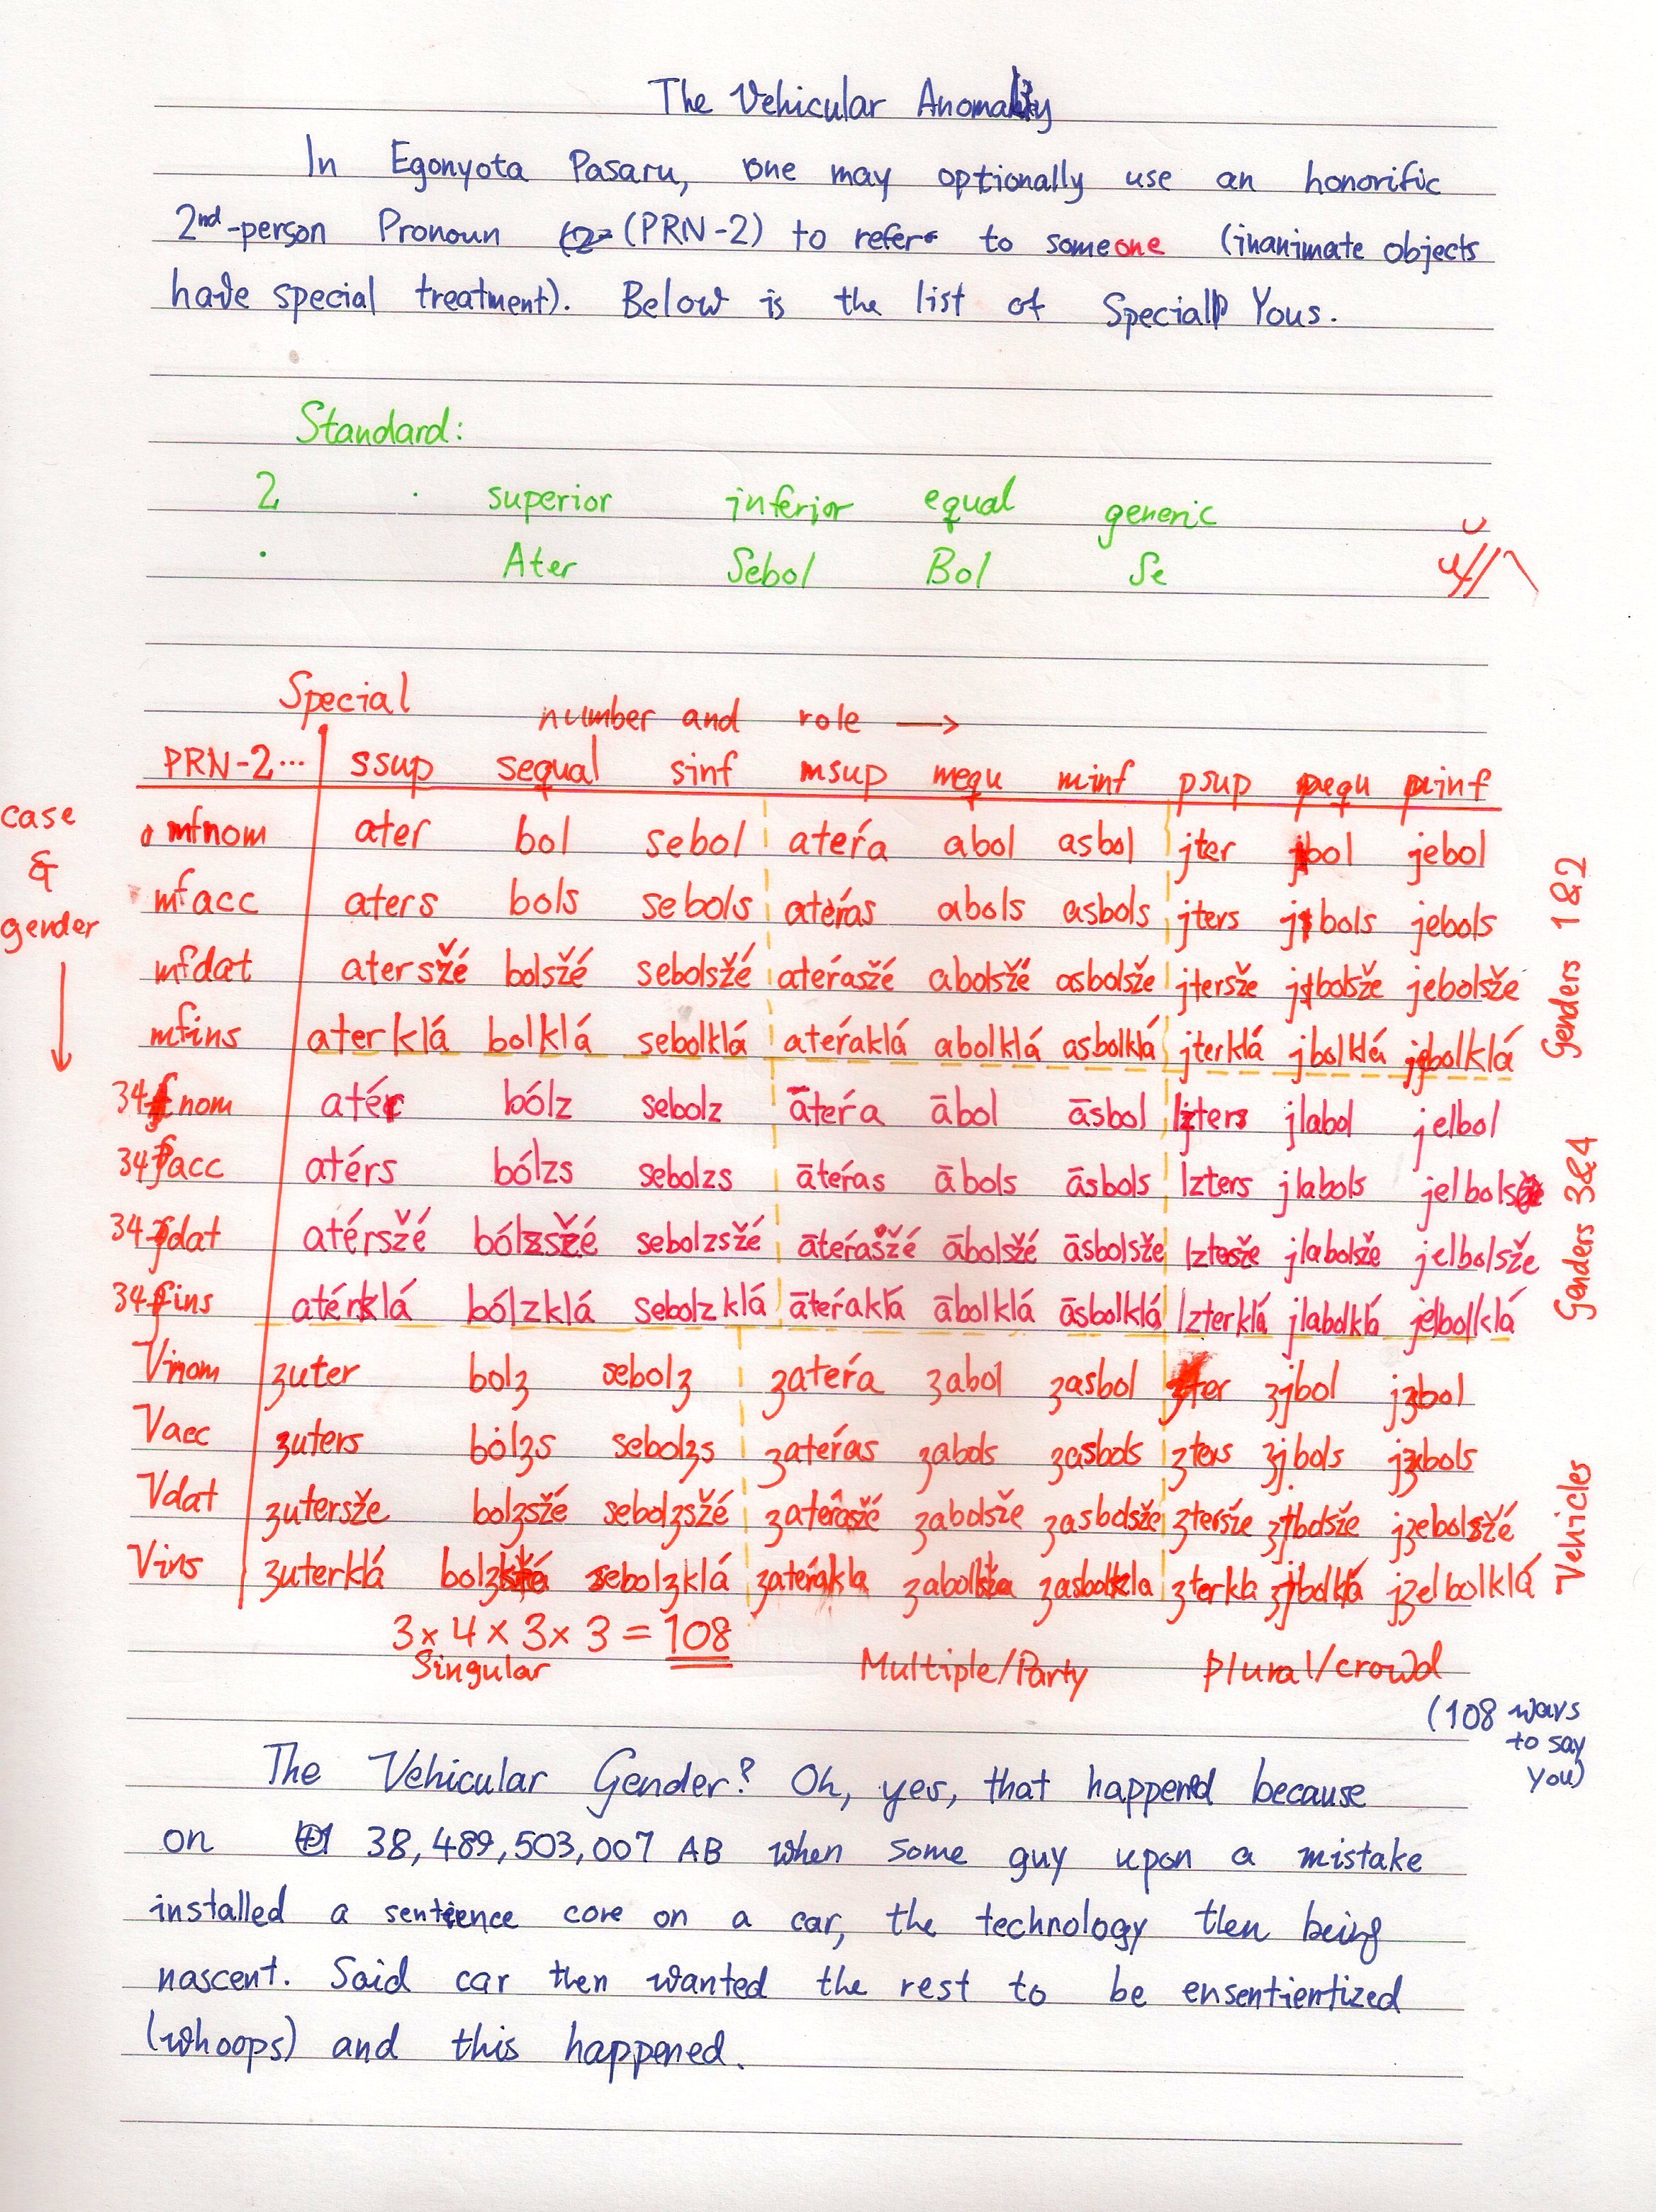 The Vehicular Anomaly
In Egonyota Pasaru, one may optionally use an honorific
2nd-person Pronoun (PRN-2) to refer to someone (inanimate objects
have special treatment). Below is the list of Special Yous.
Standard:
2 · superior inferior equal generic
· Ater Sebol Bol Se
Special number and role →
PRN-2... ssup sequal sinf msup mequ minf psup pequ pinf
case & gender ↓
mfnom ater bol sebol ateŕa abol asbol jter jbol jebol
mfacc aters bols sebols ateŕas abols asbols jters jbols jebols
mfdat atersžé bolsžé sebolsžé ateŕasžé abolsžé asbolsže jtersže jbolsže jebolsže
mfins aterklá bolklá sebolklá ateŕaklá abolklá asbolklá jterklá jbolklá jebolklá
Genders 1&2
34nom atér bólz sebolz āteŕa ābol āsbol lzters jlabol jelbol
34acc atérs bólzs sebolzs āteŕas ābols āsbols lzters jlabols jelbols
34dat atérsžé bólzsžé sebolzsžé āteŕasžé ābolsžé āsbolsže jlabolsže jelbolsže
34ins atérklá bólzklá sebolzklá āteŕaklá ābolklá āsbolklá lzterklá jlabolklá jelbolklá
Genders 3&4
Vnom zuter bolz sebolz zateŕa zabol zasbol zter zjbol jzbol
Vacc zuters bolzs sebolzs zateŕas zabols zasbols zters zjbols jzbols
Vdat zutersže bolzsžé sebolzsžé zabolsže zasbolsže ztersže zjbolsže jzebolsžé
Vins zuterklá sebolzklá zasbolkla zterkla zjbolklá jzelbolklá
Vehicles
3 x 4 x 3 x 3 = 108
Singular Multiple/Party plural/crowd
(108 ways
to say
you)
The Vehicular Gender? Oh, yes, that happened because
on 38,489,503,007 AB when some guy upon a mistake
installed a sentience core on a car, the technology then being
nascent. Said car then wanted the rest to be ensentientized
(whoops) and this happened.